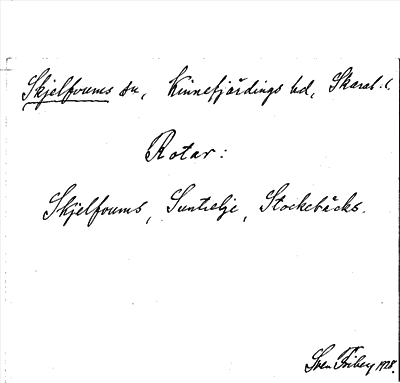 Skjelfvums sn, Kinnefjärdings hd, Skarab. l.
Rotar:
Skjelfvums, Suntelje, Stockebäcks.
Sven Friberg 1928.